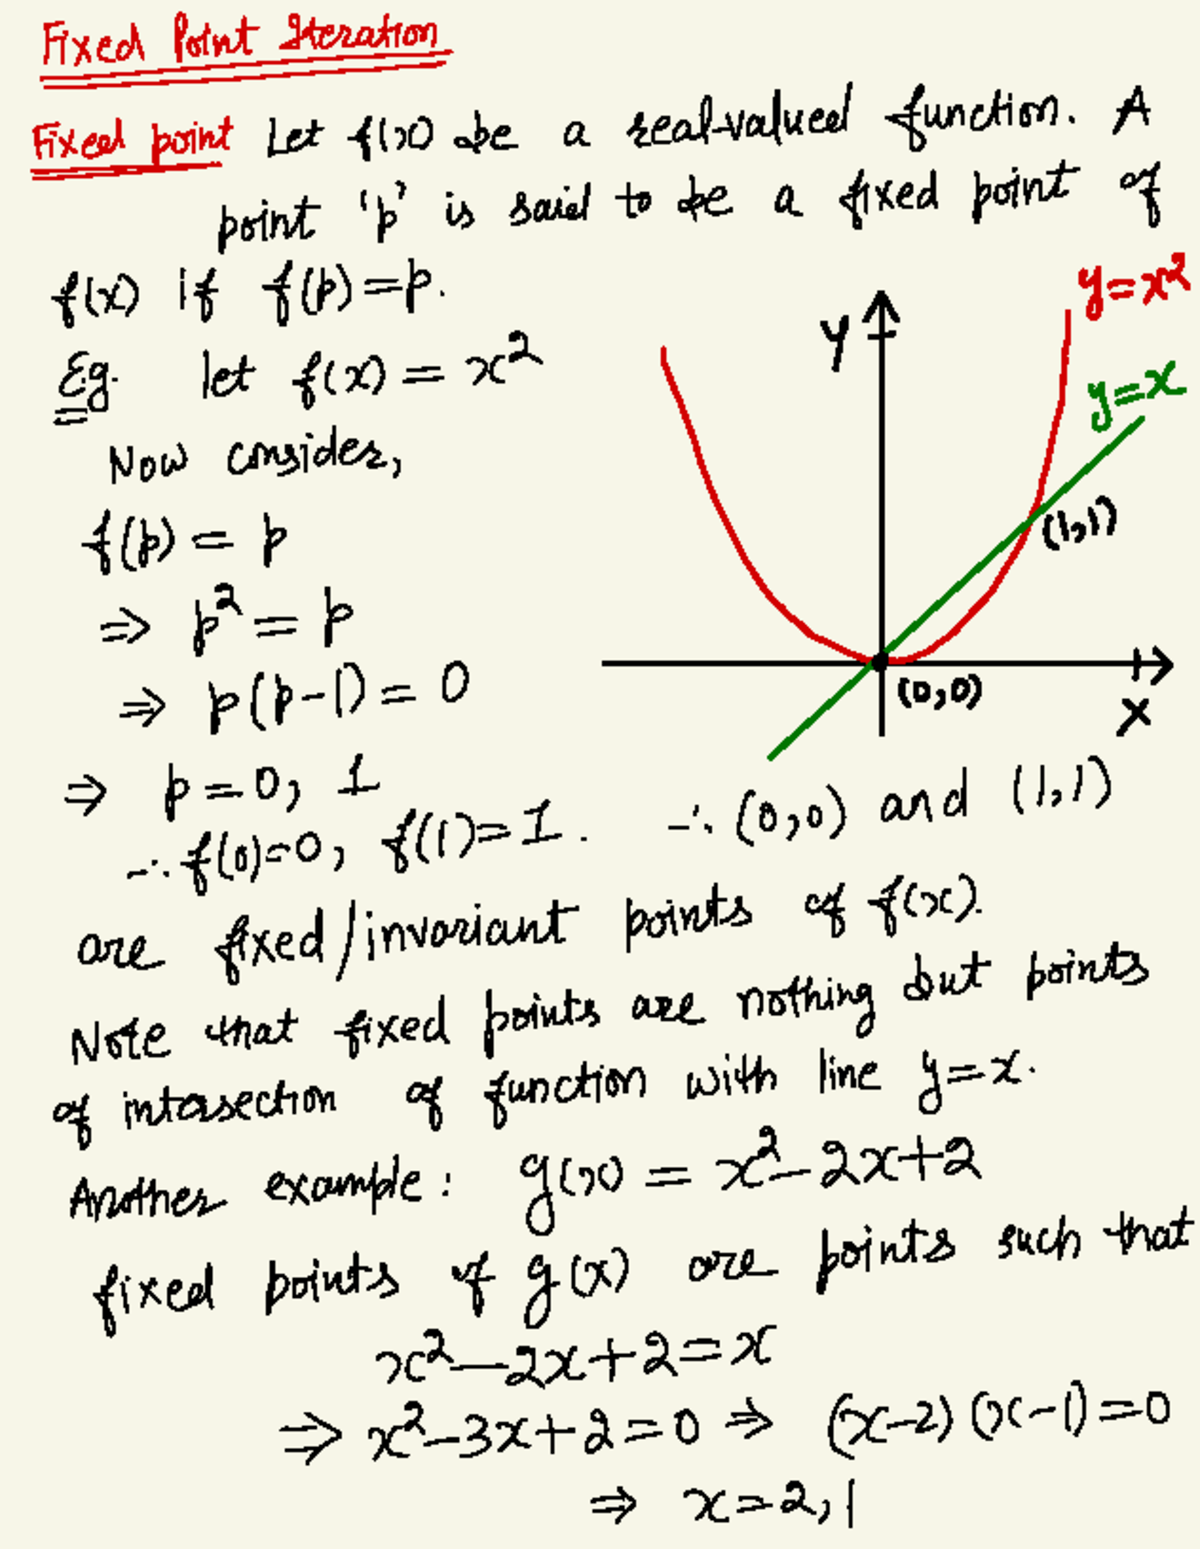 Fixed Point Iteration
Fixed point Let f(x) be a real-valued function. A
point 'p' is said to be a fixed point of
f(x) if f(p)=p.
y=x²
Y
Eg. let f(x) = x²
y=x
Now consider,
f(p) = p
(1,1)
⇒ p² = p
⇒ p(p-1) = 0
(0,0)
X
⇒ p=0, 1
∴ f(0)=0, f(1)=1. ∴ (0,0) and (1,1)
are fixed/invariant points of f(x).
Note that fixed points are nothing but points
of intersection of function with line y=x.
Another example: g(x) = x²-2x+2
fixed points of g(x) are points such that
x²-2x+2=x
⇒ x²-3x+2=0 ⇒ (x-2)(x-1)=0
⇒ x=2,1